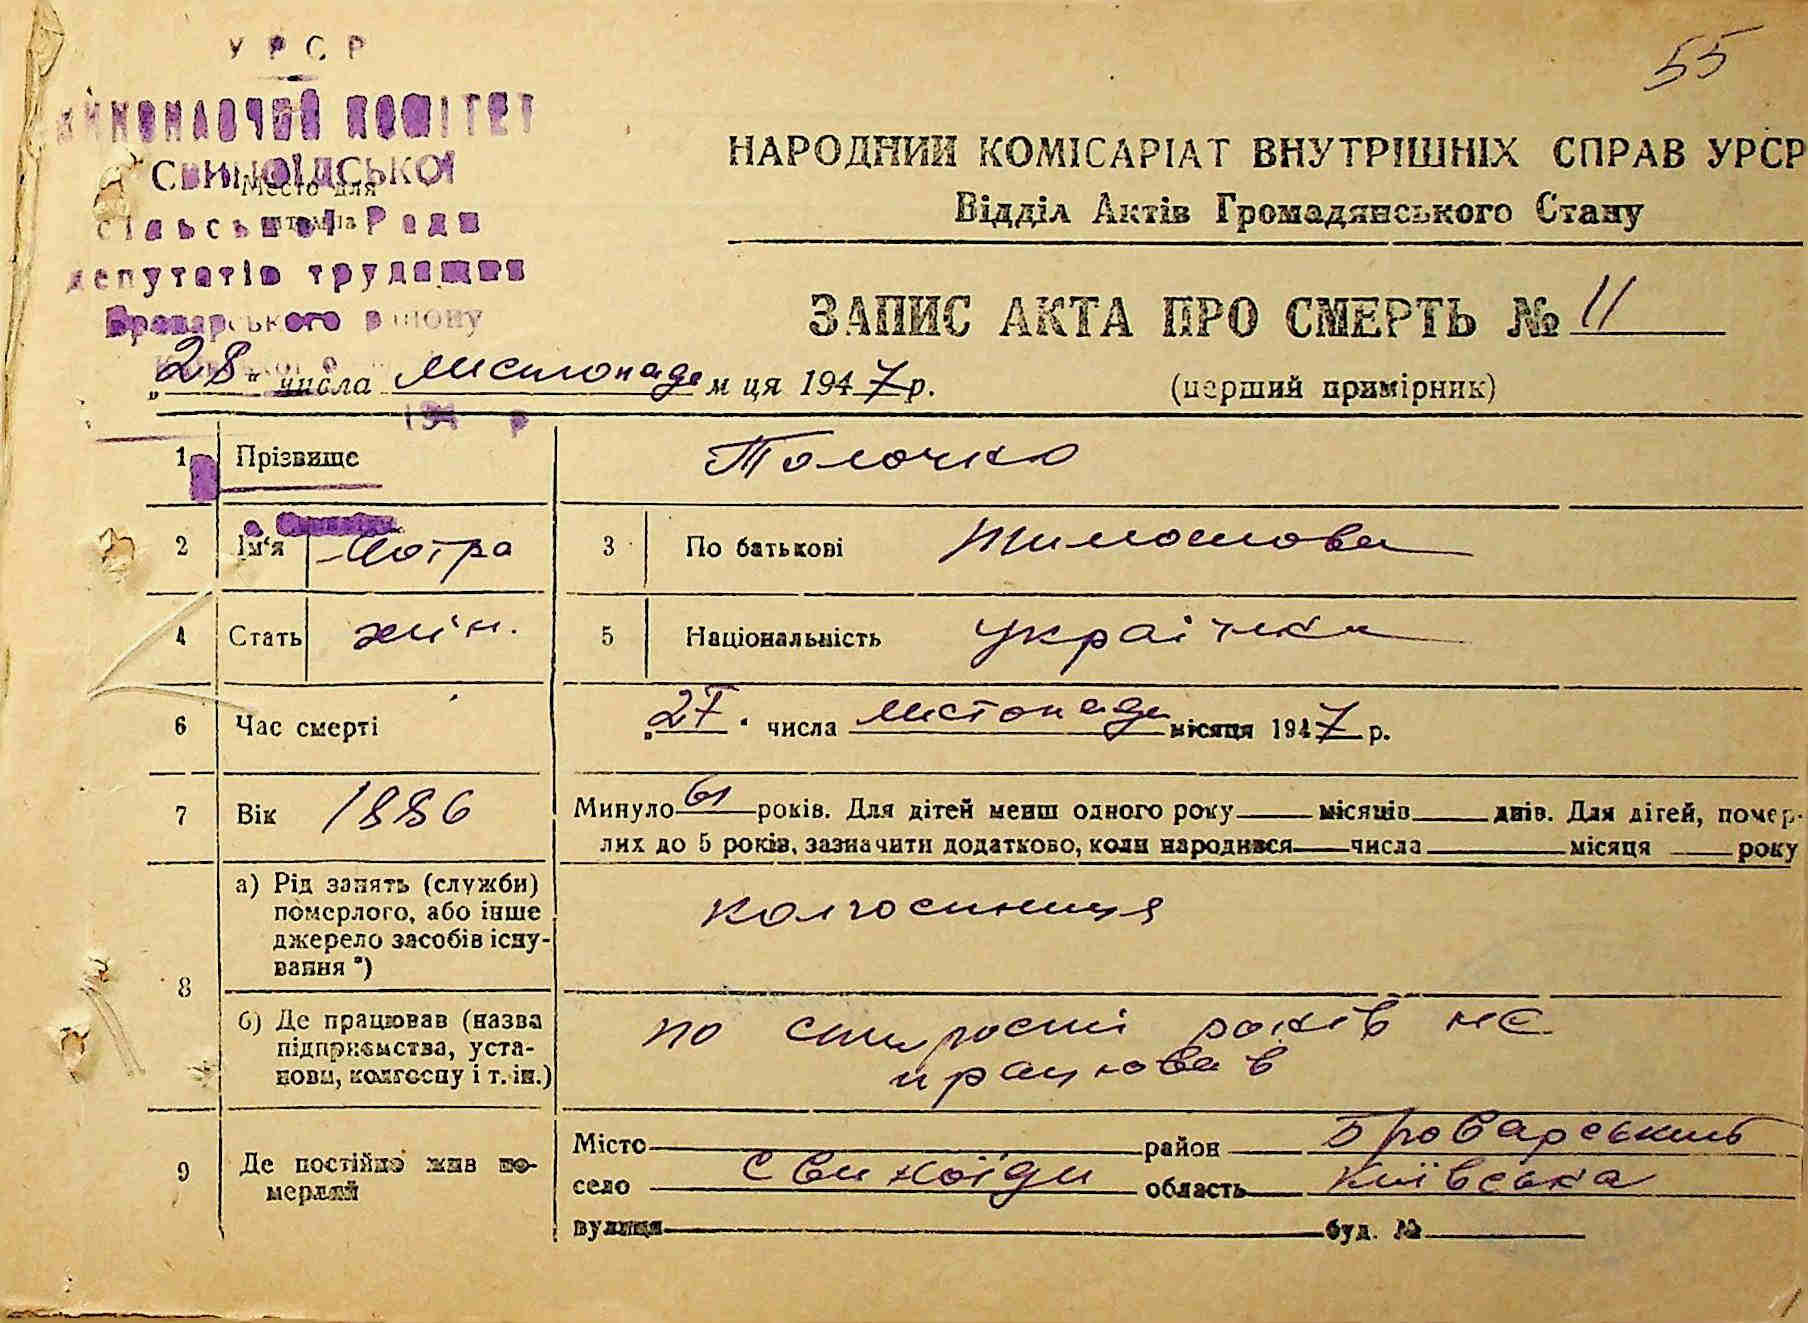 55
УРСР
ВИКОНАВЧИЙ КОМІТЕТ
СВИНОЇДСЬКОЇ
Место для
штампа
сільської Ради
депутатів трудящих
Броварського району
194 р
НАРОДНИЙ КОМІСАРІАТ ВНУТРІШНІХ СПРАВ УРСР
Відділ Актів Громадянського Стану
ЗАПИС АКТА ПРО СМЕРТЬ № 11
„28" числа листопада м ця 1947 р.
(перший примірник)
1 Прізвище Толочко
2 Ім'я Мотра 3 По батькові Тимошова
4 Стать жін. 5 Національність українка
6 Час смерті „27" числа листопада місяця 1947 р.
7 Вік 1886 Минуло 61 років. Для дітей менш одного року місяців днів. Для дітей, помер-
лих до 5 років, зазначити додатково, коли народився числа місяця року
8 а) Рід занять (служби)
померлого, або інше
джерело засобів існу-
вання *)
колгоспниця
б) Де працював (назва
підприємства, уста-
нови, колгоспу і т. ін.)
по старості років не
працював
9 Де постійно жив по-
мерлий
Місто район Броварський
село Свиноїди область Київська
вулиця буд. №